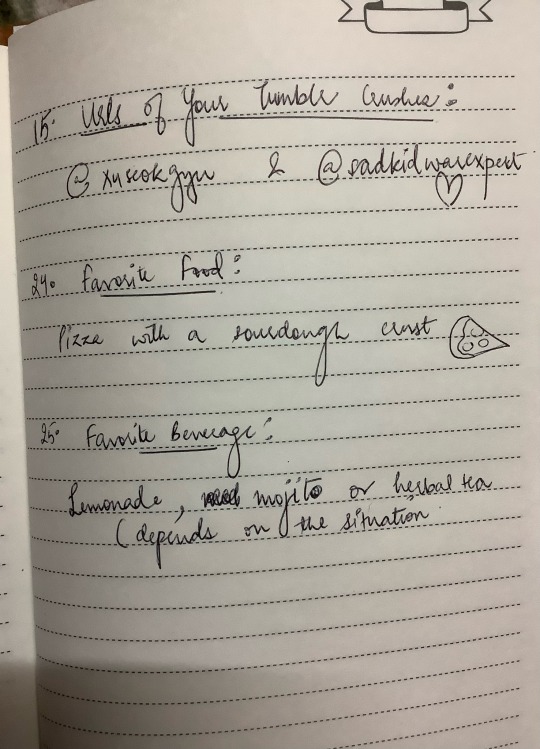 15. Urls of Your Tumblr Crushes:
@xuseokgyu & @sadkidwarexpert
24. Favorite Food:
Pizza with a sourdough crust
25. Favorite Beverage:
Lemonade, mojito or herbal tea
(depends on the situation